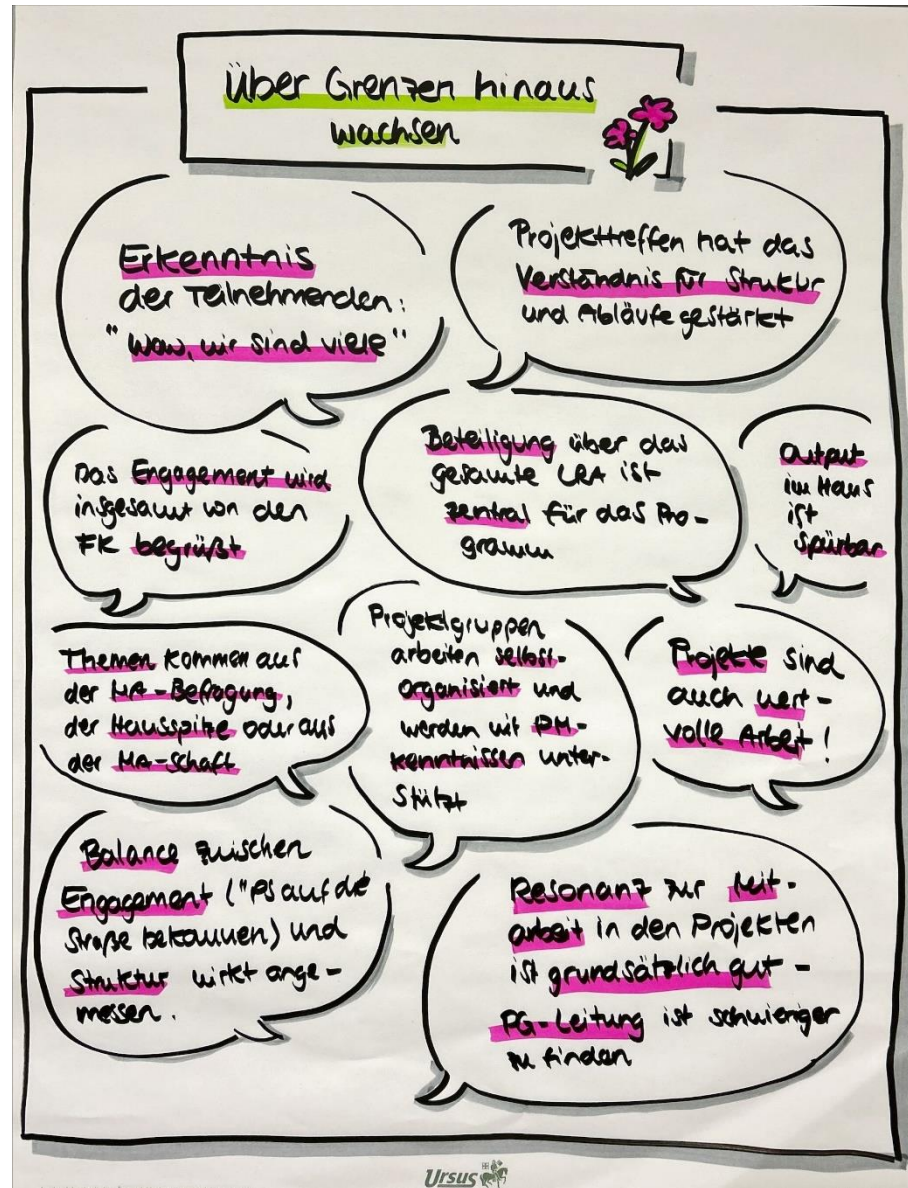 Über Grenzen hinaus
wachsen
Erkenntnis
der Teilnehmenden:
"Wow, wir sind viele"
Projekttreffen hat das
Verständnis für Struktur
und Abläufe gestärkt
Das Engagement wird
insgesamt von den
FK begrüßt
Beteiligung über das
gesamte LRA ist
zentral für das Pro-
gramm
Output
im Haus
ist
spürbar
Themen kommen aus
der MA-Befragung,
der Hausspitze oder aus
der MA-Schaft
Projektgruppen
arbeiten selbst-
organisiert und
werden mit PM-
kenntnissen unter-
stützt
Projekte sind
auch wert-
volle Arbeit!
Balance zwischen
Engagement ("PS auf die
Straße bekommen) und
Struktur wirkt ange-
messen.
Resonanz zur Mit-
arbeit in den Projekten
ist grundsätzlich gut -
PG-Leitung ist schwieriger
zu finden
Ursus